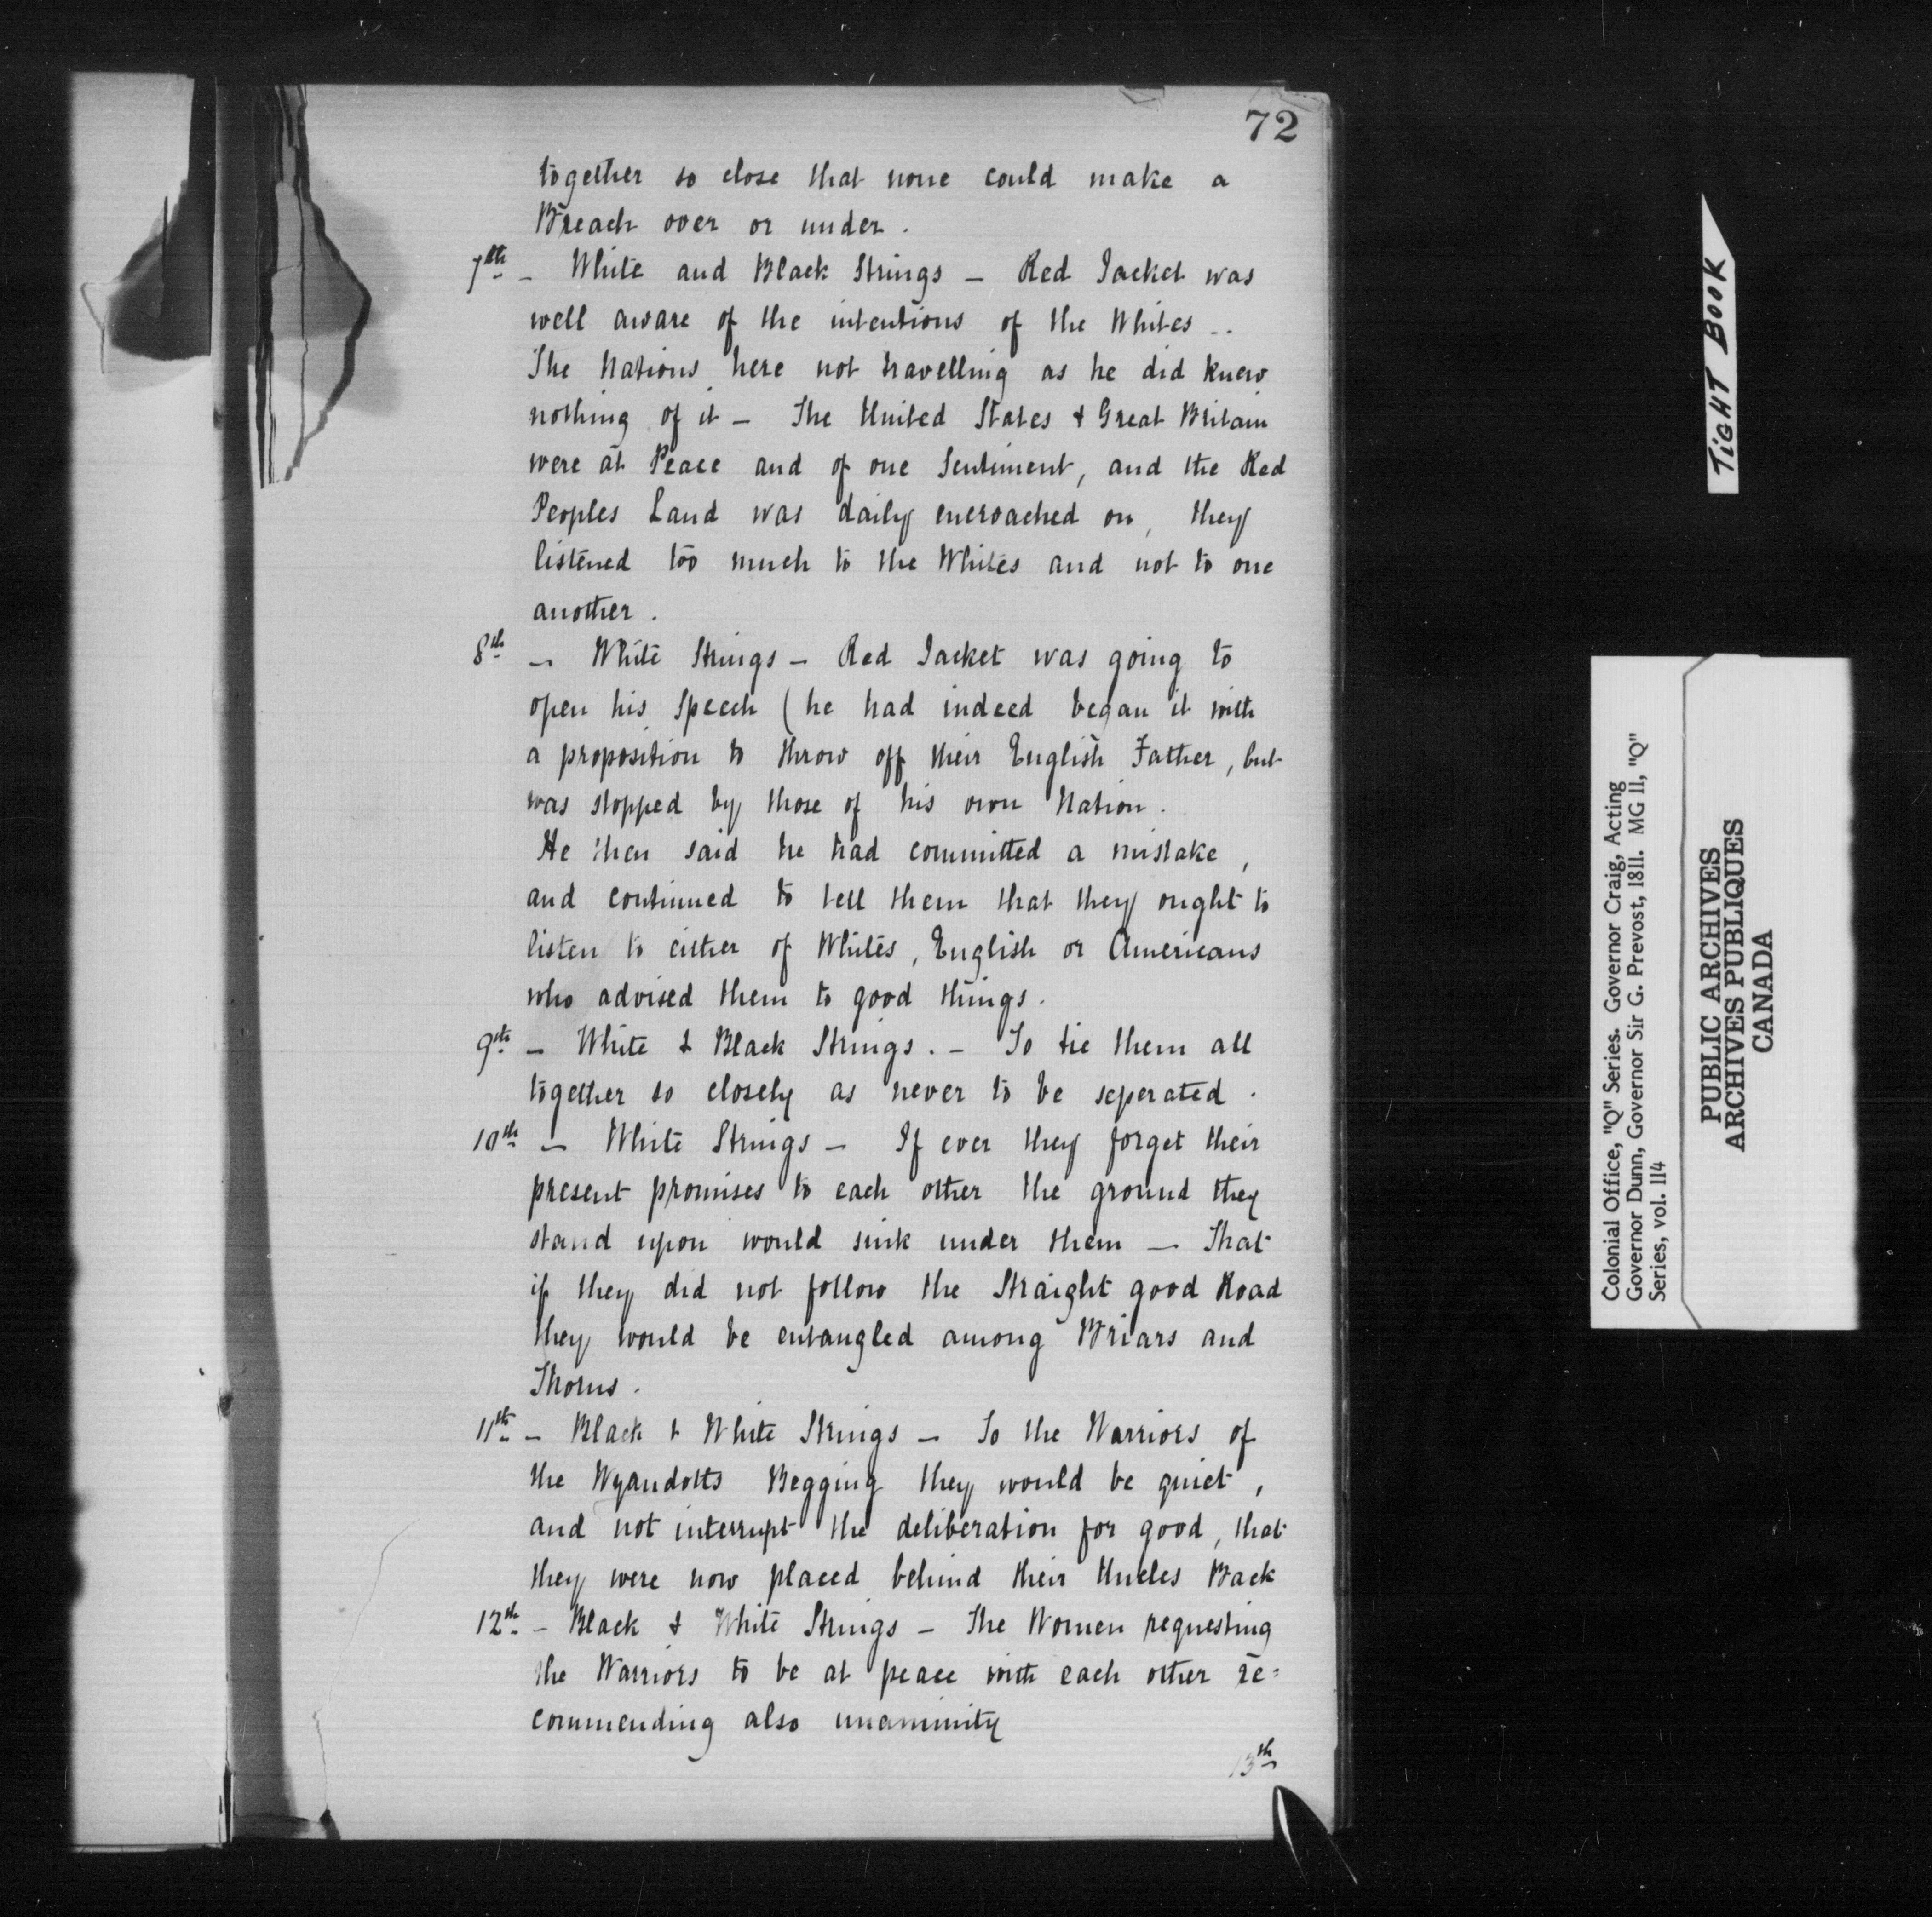 72
together so close that none could make a
Breach over or under.
7th - White and Black Strings - Red Jacket was
well aware of the intentions of the Whites --
The Nations here not travelling as he did knew
nothing of it - The United States & Great Britain
were at Peace and of one Sentiment, and the Red
Peoples Land was daily encroached on, they
listened too much to the Whites and not to one
another.
8th - White Strings - Red Jacket was going to
open his Speech (he had indeed began it with
a proposition to throw off their English Father, but
was stopped by those of his own Nation.
He then said he had committed a mistake,
and continued to tell them that they ought to
listen to either of Whites, English or Americans
who advised them to good things.
9th - White & Black Strings. - To tie them all
together so closely as never to be seperated.
10th - White Strings - If ever they forget their
present promises to each other the ground they
stand upon would sink under them - That
if they did not follow the Straight good Road
they would be entangled among Briars and
Thorns.
11th - Black & White Strings - To the Warriors of
the Wyandotts Begging they would be quiet,
and not interrupt the deliberation for good, that
they were now placed behind their Uncles Back
12th - Black & White Strings - The Women requesting
the Warriors to be at peace with each other re=
commending also unanimity
13th
TIGHT BOOK
Colonial Office, "Q" Series. Governor Craig, Acting
Governor Dunn, Governor Sir G. Prevost, 1811. MG 11, "Q"
Series, vol. 114
PUBLIC ARCHIVES
ARCHIVES PUBLIQUES
CANADA